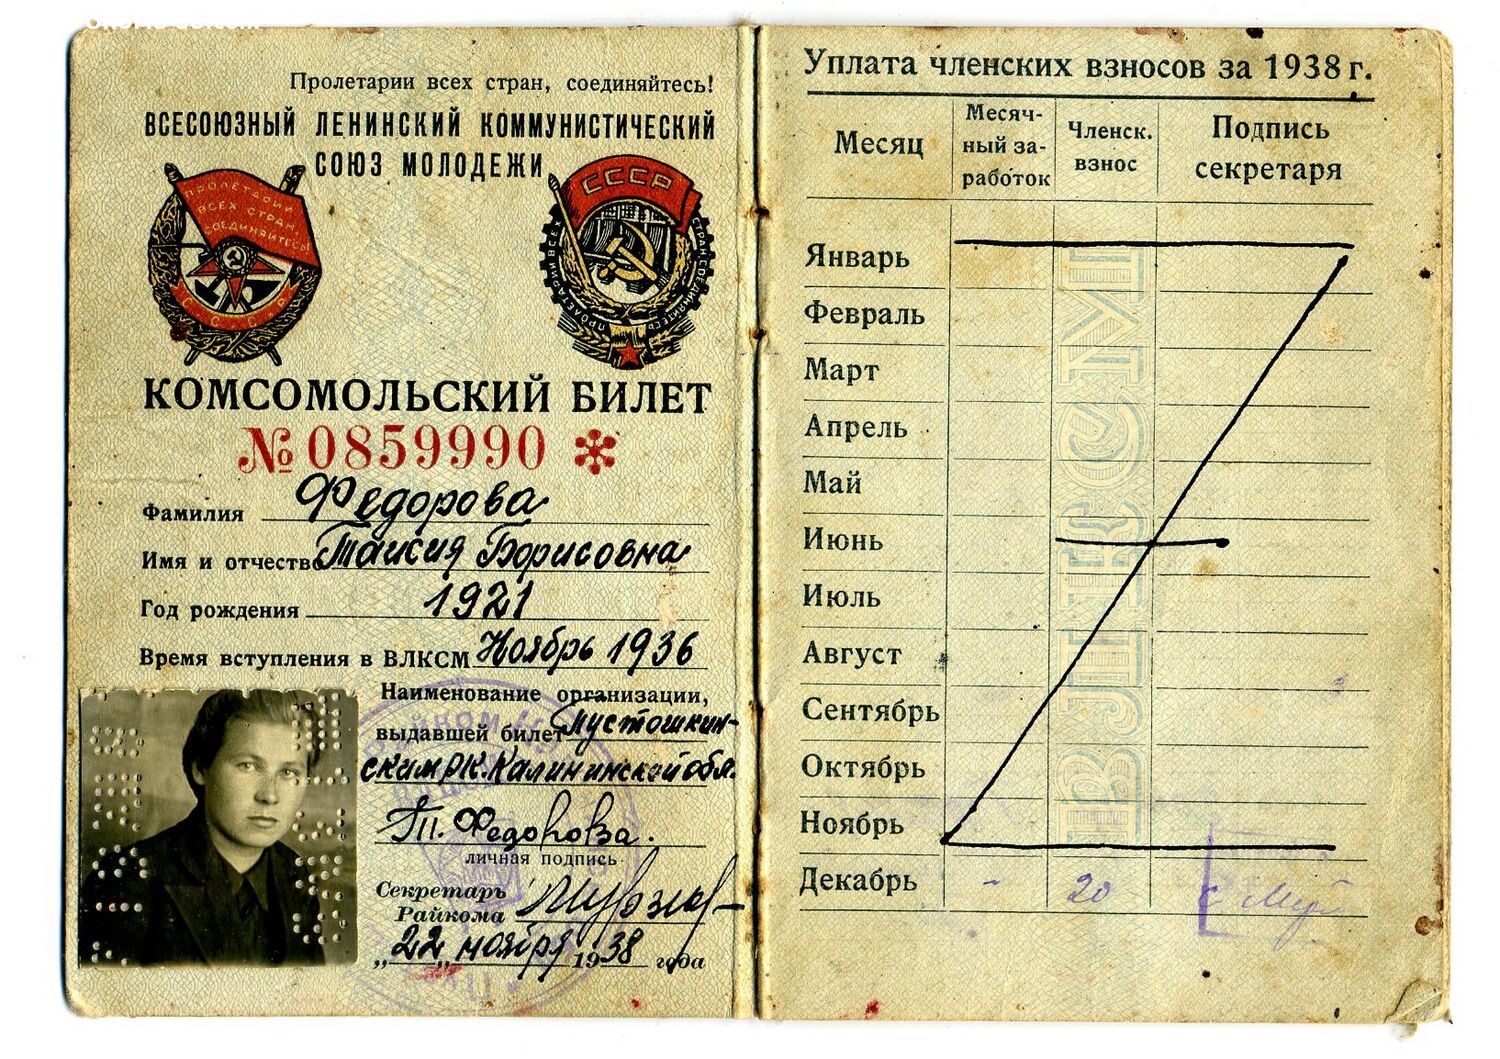 Пролетарии всех стран, соединяйтесь!
ВСЕСОЮЗНЫЙ ЛЕНИНСКИЙ КОММУНИСТИЧЕСКИЙ
СОЮЗ МОЛОДЕЖИ
ПРОЛЕТАРИИ
ВСЕХ СТРАН,
СОЕДИНЯЙТЕСЬ!
С С С Р
СССР
ПРОЛЕТАРИИ ВСЕХ СТРАН СОЕДИНЯЙТЕСЬ
КОМСОМОЛЬСКИЙ БИЛЕТ
№ 0859990 *
Фамилия Федорова
Имя и отчество Таисия Борисовна
Год рождения 1921
Время вступления в ВЛКСМ Ноябрь 1936
Наименование организации,
выдавшей билет Пустошкин-
ским РК. Калининской обл.
Т. Федорова.
личная подпись
Секретарь
Райкома
„22„ ноября 1938 года
Уплата членских взносов за 1938 г.
Месяц Месяч-ный за-работок Членск. взнос Подпись секретаря
Январь
Февраль
Март
Апрель
Май
Июнь
Июль
Август
Сентябрь
Октябрь
Ноябрь
Декабрь - 20
ВЛКСМ